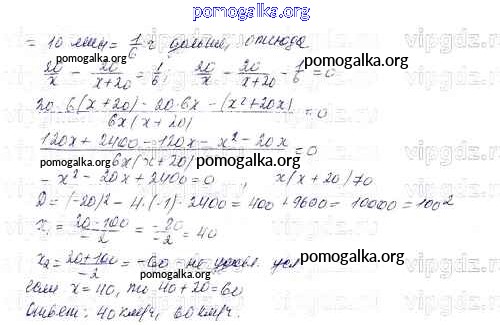 pomogalka.org
= 10 мин = 1/6 ч дольше, отсюда
20/x - 20/(x+20) = 1/6; 20/x - 20/(x+20) - 1/6 = 0
(20·6(x+20) - 20·6x - (x²+20x))/(6x(x+20)) = 0
(120x + 2400 - 120x - x² - 20x)/(6x(x+20)) = 0
-x² - 20x + 2400 = 0, x(x+20)≠0
D = (-20)² - 4·(-1)·2400 = 400 + 9600 = 10000 = 100²
x₁ = (20-100)/-2 = -80/-2 = 40
x₂ = (20+100)/-2 = -60 - не удовл. усл
если x = 40, то 40 + 20 = 60
Ответ: 40 км/ч, 60 км/ч.
pomogalka.org